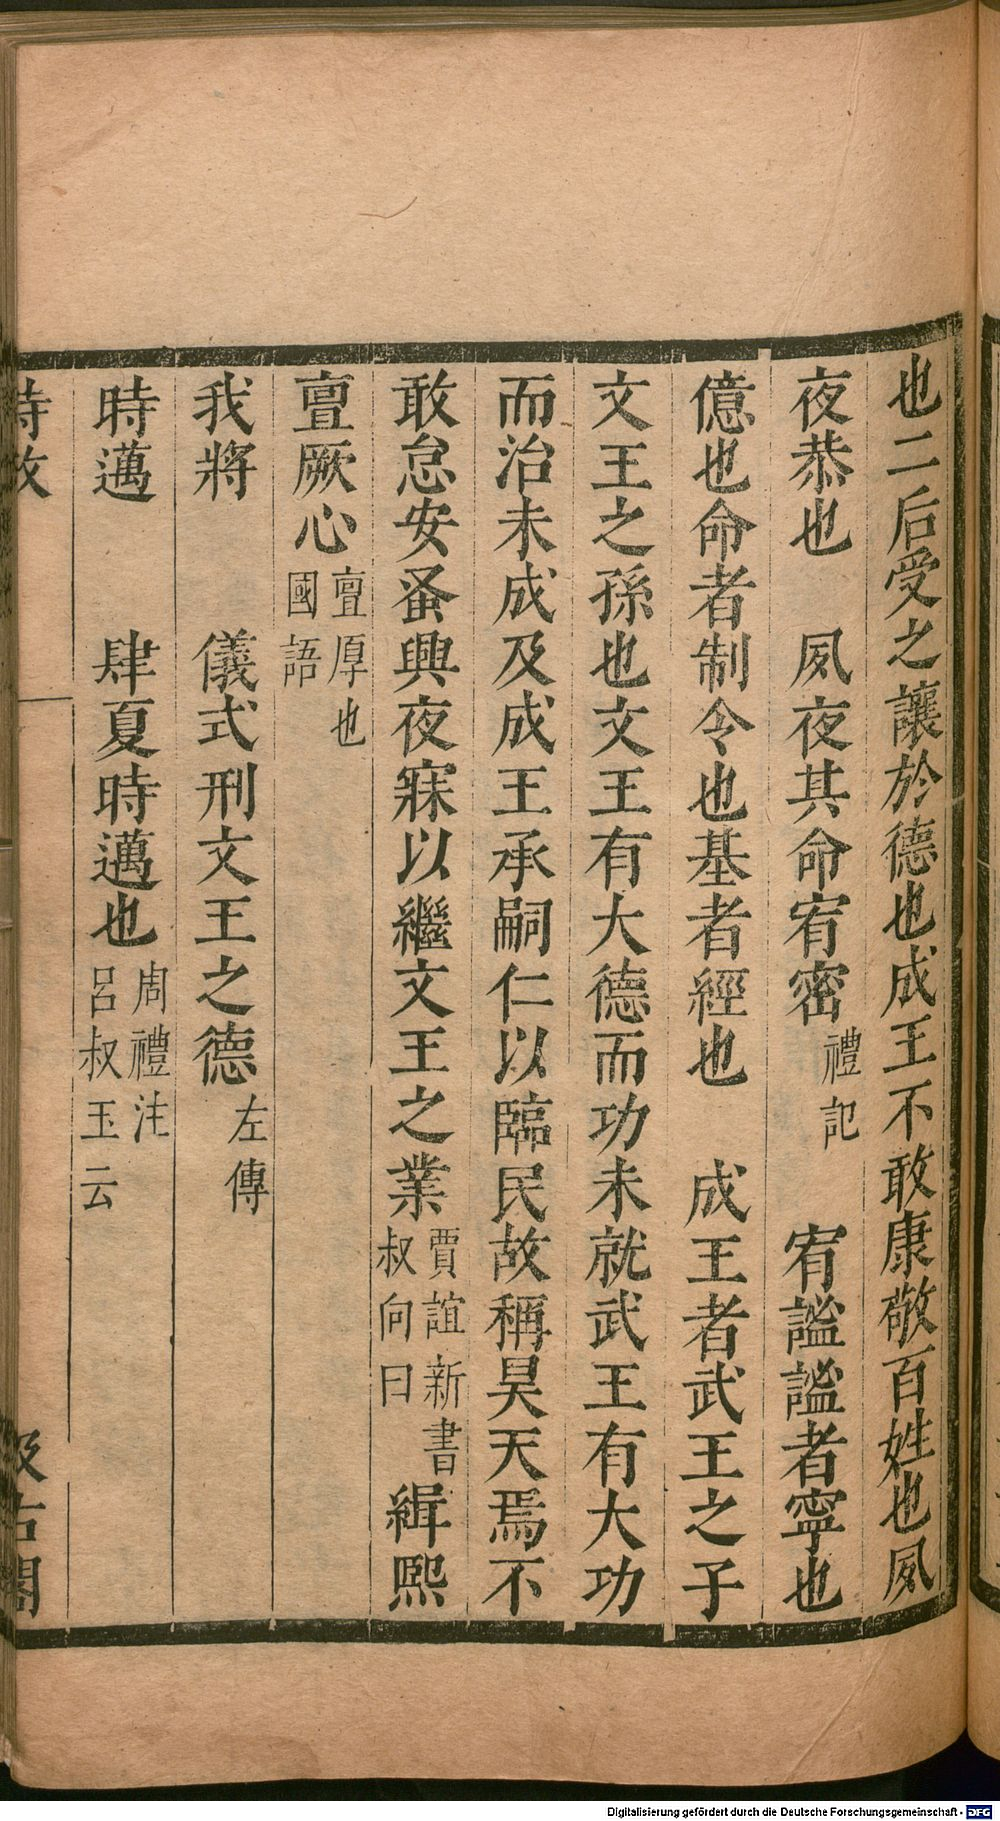 也二后受之讓於德也成王不敢康敬百姓也夙
夜恭也　夙夜其命宥密禮記　宥謐謐者寧也
億也命者制令也基者經也　成王者武王之子
文王之孫也文王有大德而功未就武王有大功
而治未成及成王承嗣仁以臨民故稱昊天焉不
敢怠安蚤興夜寐以繼文王之業賈誼新書叔向曰　緝熙
亶厥心亶厚也國語
我將　儀式刑文王之德左傳
時邁　肆夏時邁也周禮注呂叔玉云
詩攷　汲古閣
Digitalisierung gefördert durch die Deutsche Forschungsgemeinschaft - DFG